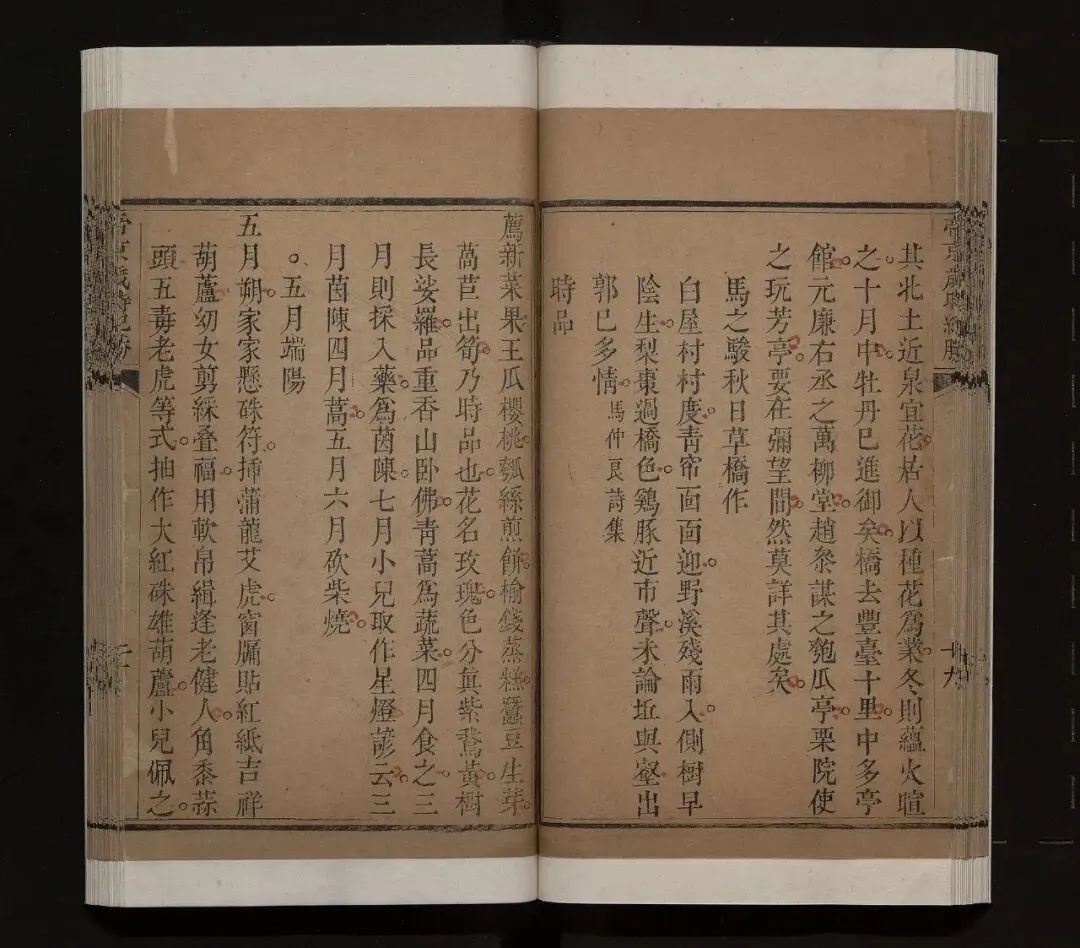 其北土近泉宜花居人以種花爲業冬則蘊火暄
之十月中牡丹已進御矣橋去豐臺十里中多亭
館元廉右丞之萬柳堂趙叅謀之匏瓜亭栗院使
之玩芳亭要在彌望間然莫詳其處矣
馬之駿秋日草橋作
白屋村村度青帘面面迎野溪殘雨入側樹早
陰生梨棗過橋色鷄豚近市聲未論坵與壑出
郭已多情馬仲良詩集
時品
薦新菜果王瓜櫻桃瓠絲煎餅榆錢蒸糕蠶豆生芽
萵苣出筍乃時品也花名玫瑰色分眞紫鵞黃樹
長娑羅品重香山卧佛靑蒿爲蔬菜四月食之三
月則採入藥爲茵陳七月小兒取作星燈諺云三
月茵陳四月蒿五月六月砍柴燒
五月端陽
五月朔家家懸硃符揷蒲龍艾虎窗牖貼紅紙吉祥
葫蘆幼女剪綵叠福用軟帛緝逢老健人角黍蒜
頭五毒老虎等式抽作大紅硃雄葫蘆小兒佩之
帝京歲時紀勝
十九
二十